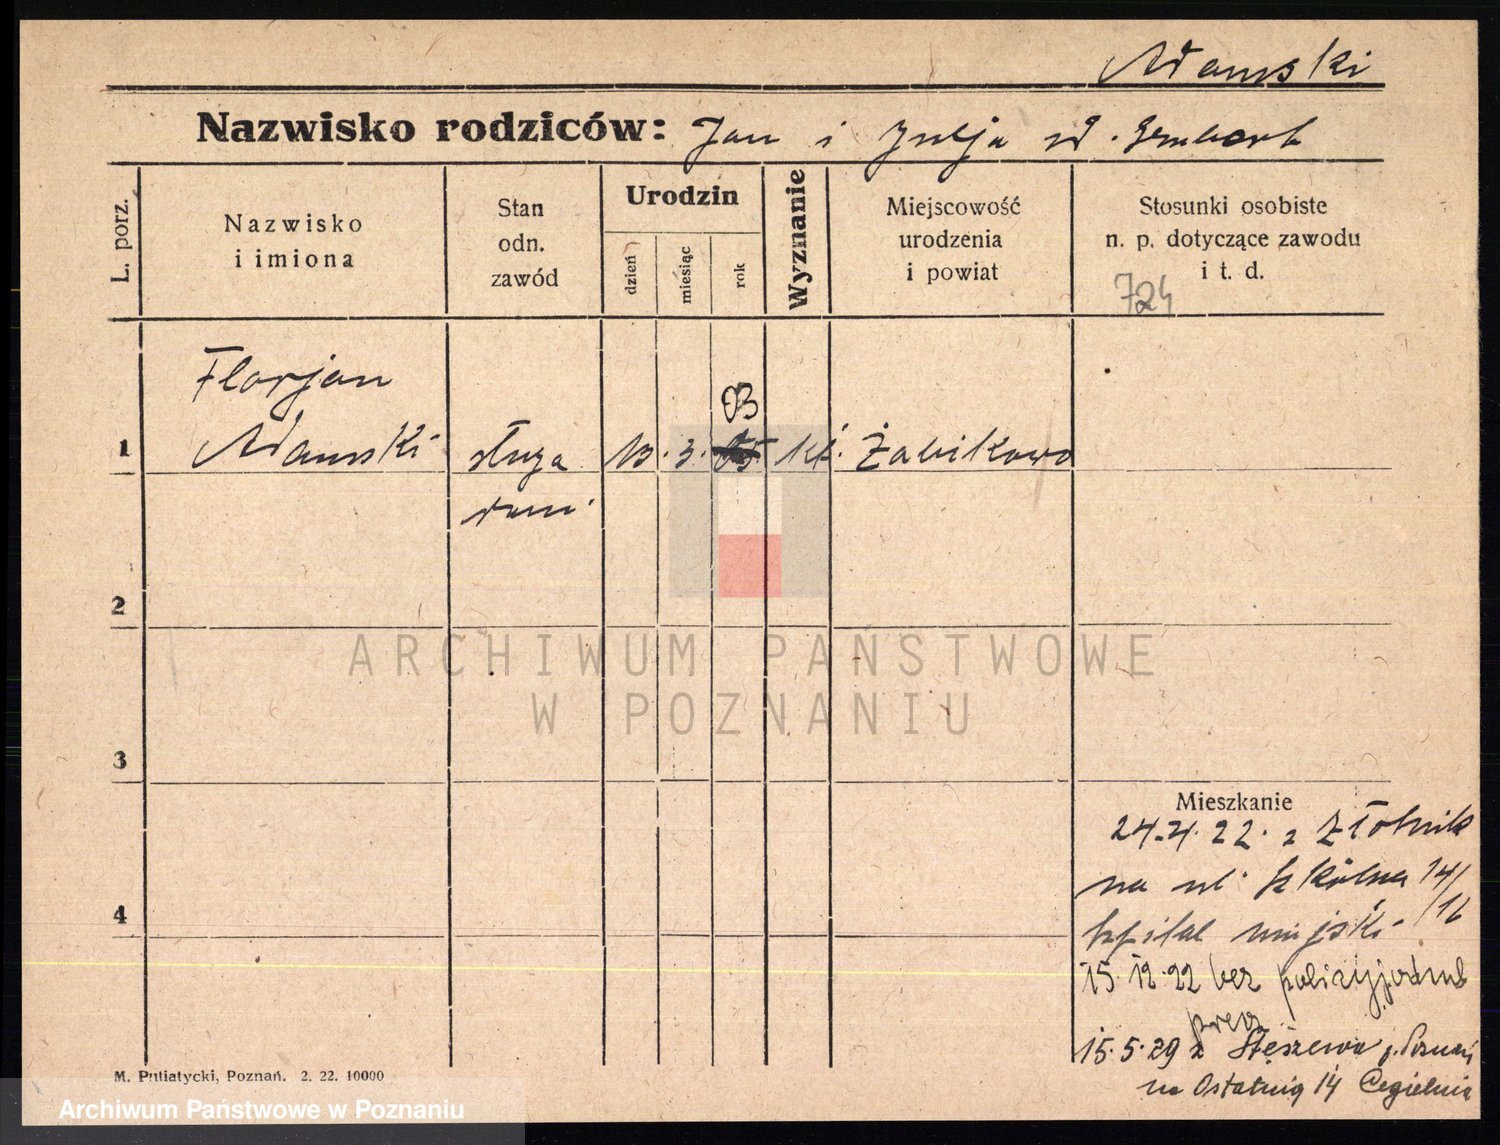 Adamski
Nazwisko rodziców: Jan i Julja
L. porz.
Nazwisko
i imiona
Stan
odn.
zawód
Urodzin
dzień
miesiąc
rok
Wyznanie
Miejscowość
urodzenia
i powiat
Stosunki osobiste
n. p. dotyczące zawodu
i t. d.
724
Florjan
03
1 Adamski sługa 13. 3. 05 kt. Żabikowo
2
3
4
Mieszkanie
24.4.22. z Złotnik
na ul. Szkólna 14/
/16
szpital miejski
15.12.22 bez
15.5.29 z Stęszewa p. Poznań
na Ostatnią 14 Cegielnia
M. Putiatycki, Poznań. 2. 22. 10000
ARCHIWUM PAŃSTWOWE
W POZNANIU
Archiwum Państwowe w Poznaniu